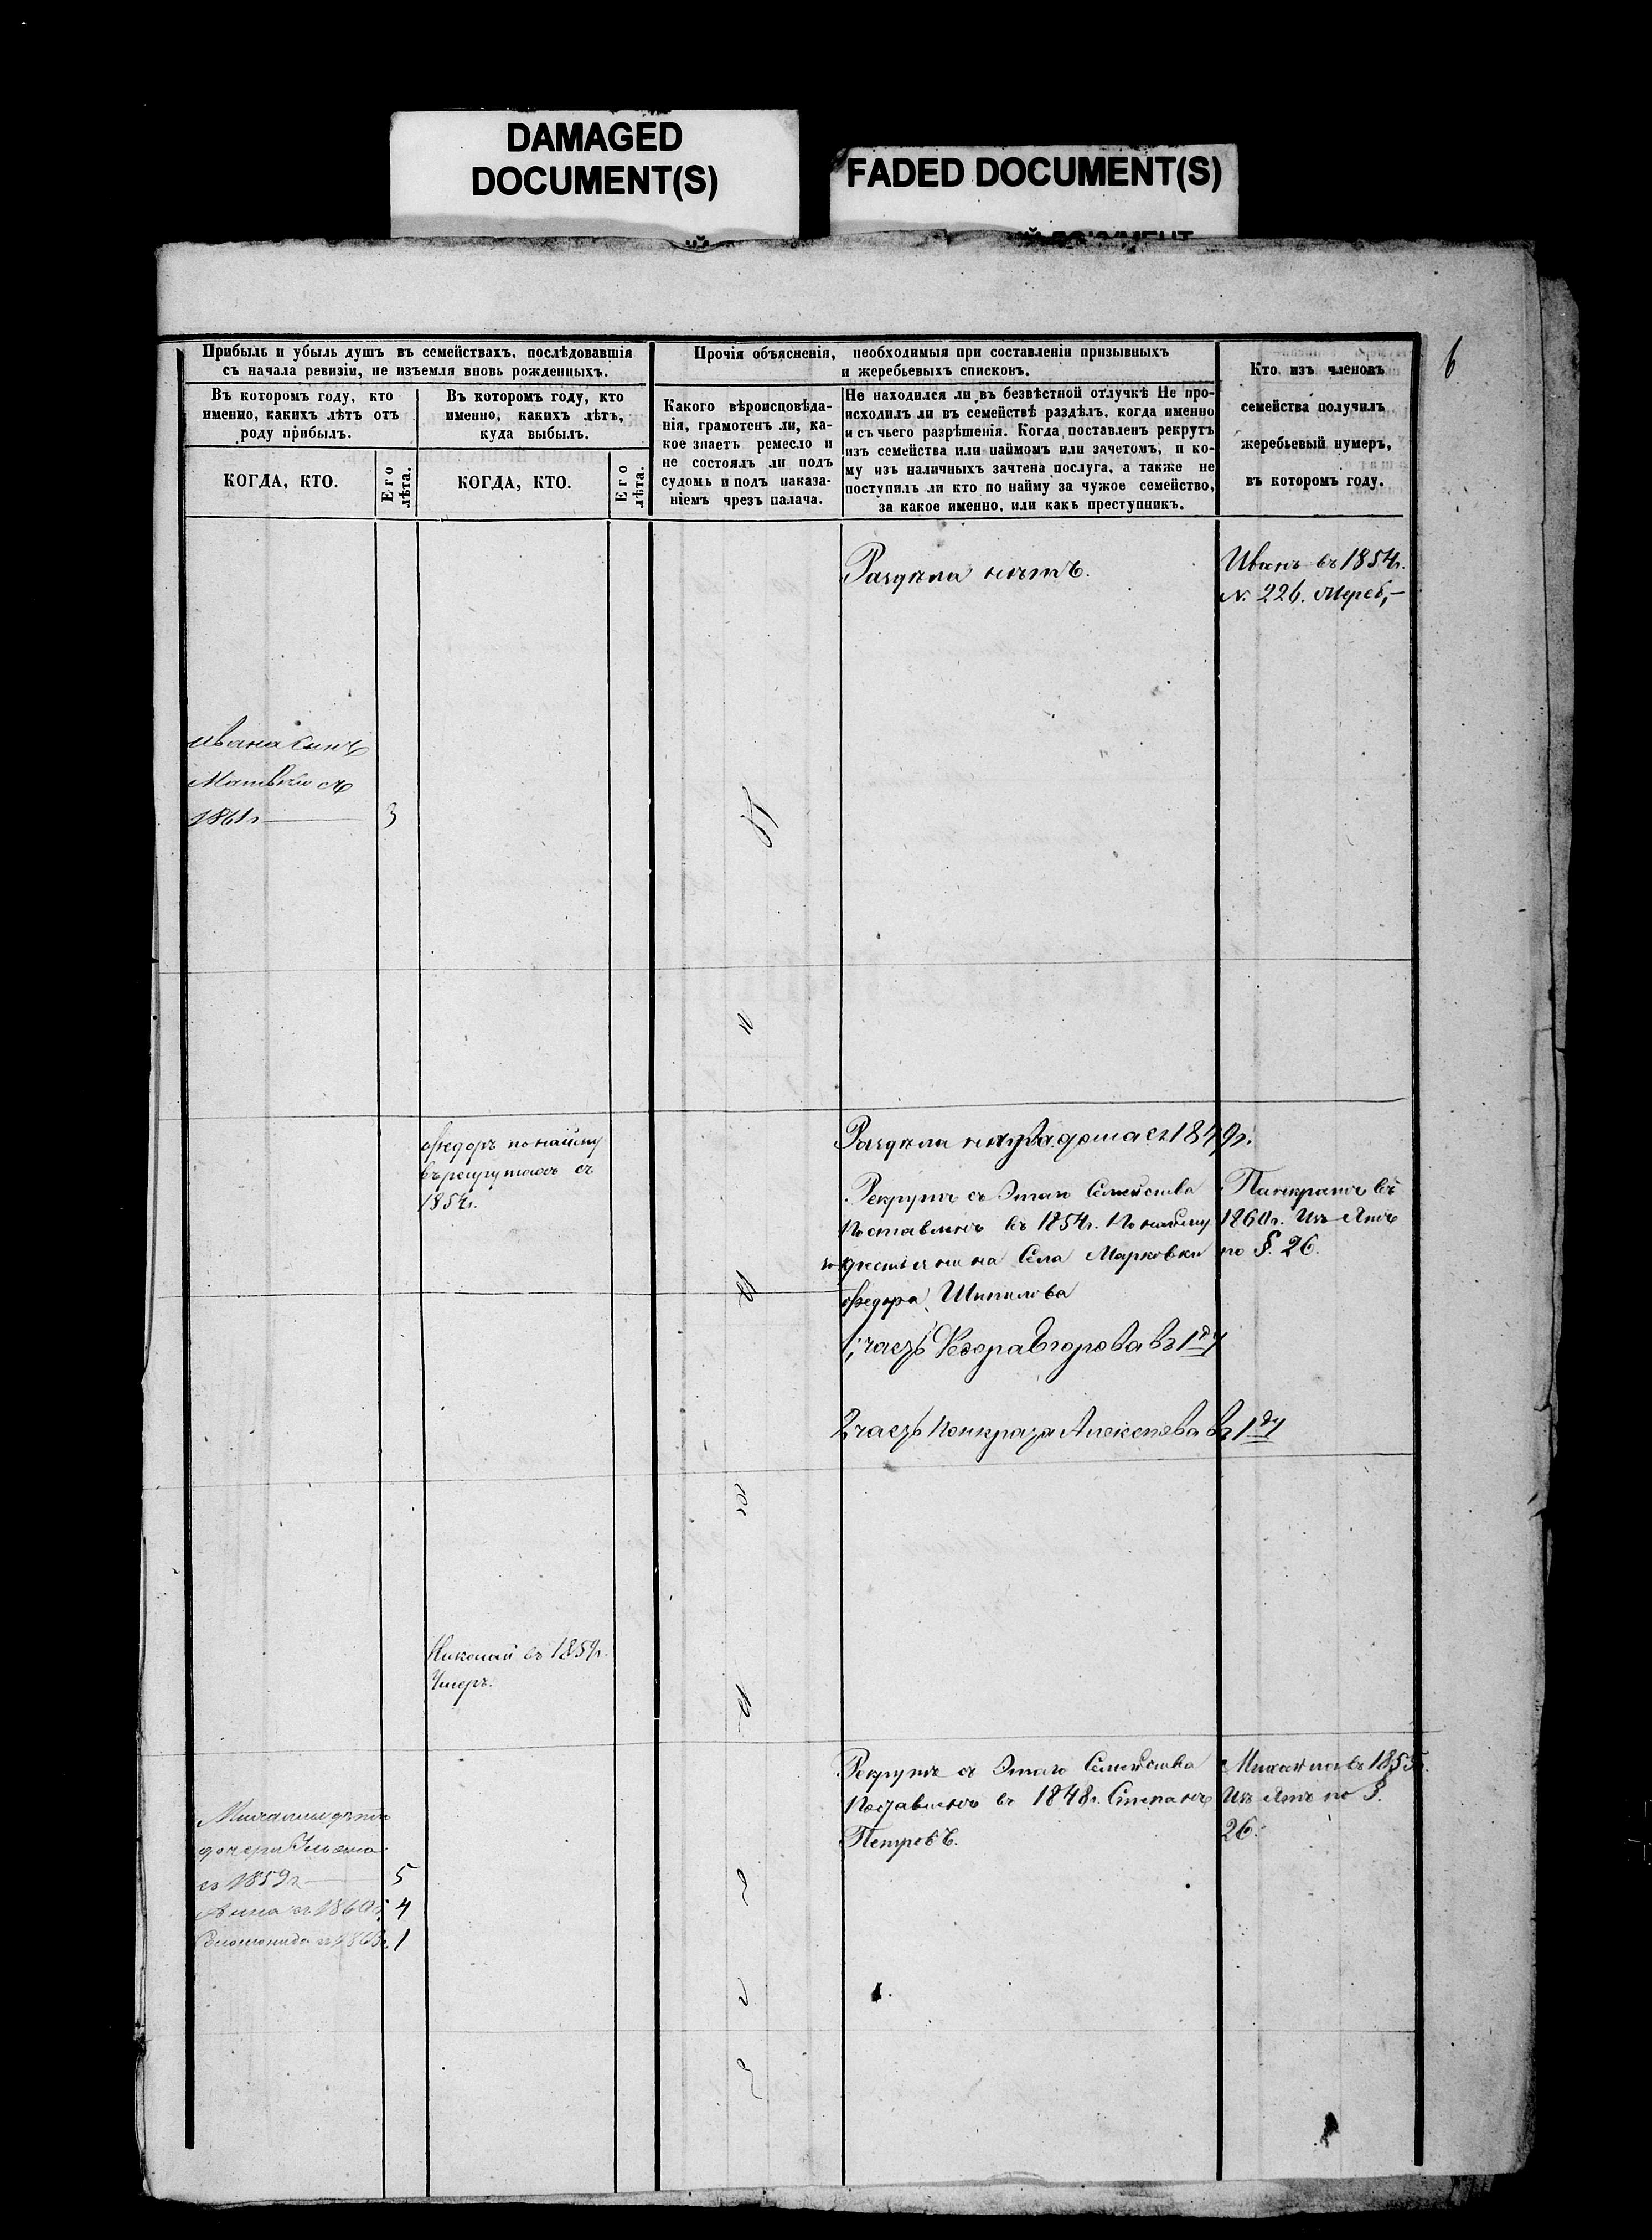 DAMAGED
DOCUMENT(S)
FADED DOCUMENT(S)
6
Прибыль и убыль душъ въ семействахъ, послѣдовавшія
съ начала ревизіи, не изъемля вновь рожденныхъ.
Прочія объясненія, необходимыя при составленіи призывныхъ
и жеребьевыхъ списковъ.
Кто изъ членовъ
семейства получилъ
жеребьевый нумеръ,
въ которомъ году.
Въ которомъ году, кто
именно, какихъ лѣтъ отъ
роду прибылъ.
Въ которомъ году, кто
именно, какихъ лѣтъ,
куда выбылъ.
Какого вѣроисповѣда-
нія, грамотенъ ли, ка-
кое знаетъ ремесло и
не состоялъ ли подъ
судомъ и подъ наказа-
ніемъ чрезъ палача.
Не находился ли въ безвѣстной отлучкѣ Не про-
исходилъ ли въ семействѣ раздѣлъ, когда именно
и съ чьего разрѣшенія. Когда поставленъ рекрутъ
изъ семейства или наймомъ или зачетомъ, и ко-
му изъ наличныхъ зачтена послуга, а также не
поступилъ ли кто по найму за чужое семейство,
за какое именно, или какъ преступникъ.
КОГДА, КТО.
Его
лѣта.
КОГДА, КТО.
Его
лѣта.
Раздѣла нѣтъ.
Иванъ въ 1854г.
N. 226. Жереб,-
Ивана сынъ
Матвѣй съ
1861г
3
Федоръ по найму
въ рекрутахъ съ
1854г.
Раздѣла на два дома съ 1849г.
Рекрутъ съ Этаго Семейства
Поставленъ въ 1854г. По найму
крестьянина Села Марковки
Федора Шипилова
Панкратъ въ
1860г. Изъятъ
по §. 26.
1, часть Федора Егорова въ 1ду
2 часть Понкрата Алексѣева въ 1ду
Николай въ 1859г.
Умеръ.
Рекрутъ съ Этаго Семейства
Поставленъ въ 1848г. Степанъ
Петровъ.
Михайла въ 1855г.
Изъятъ по §.
26.
дочери
съ 1859г
5
Анна съ 1860г.
4
Соломонида съ 1863г.
1